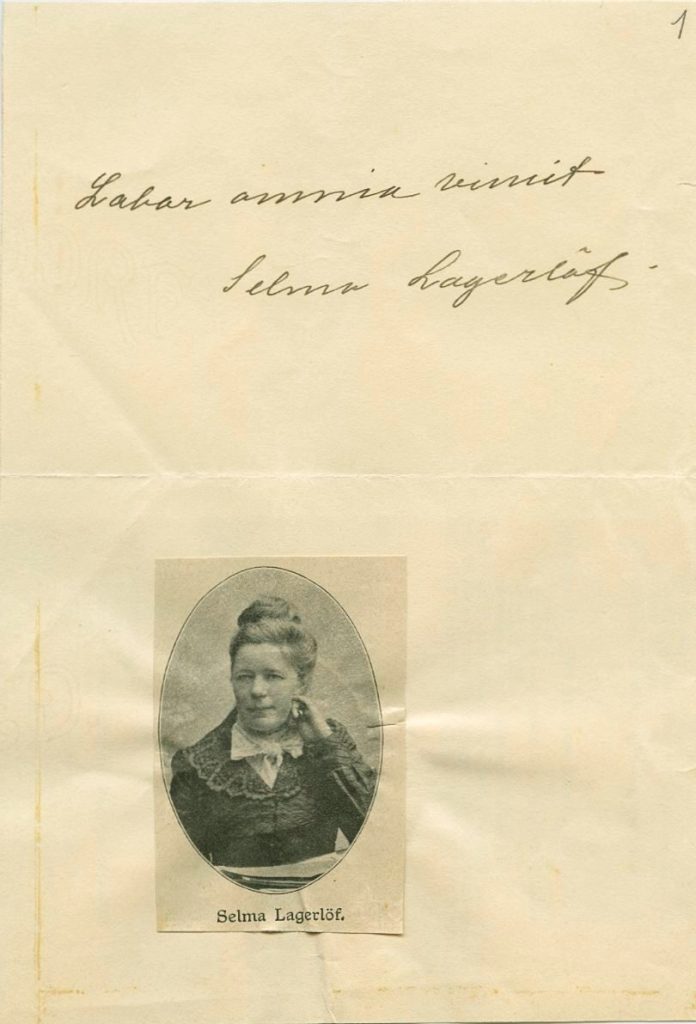 1
Labor omnia vincit
Selma Lagerlöf.
Selma Lagerlöf.